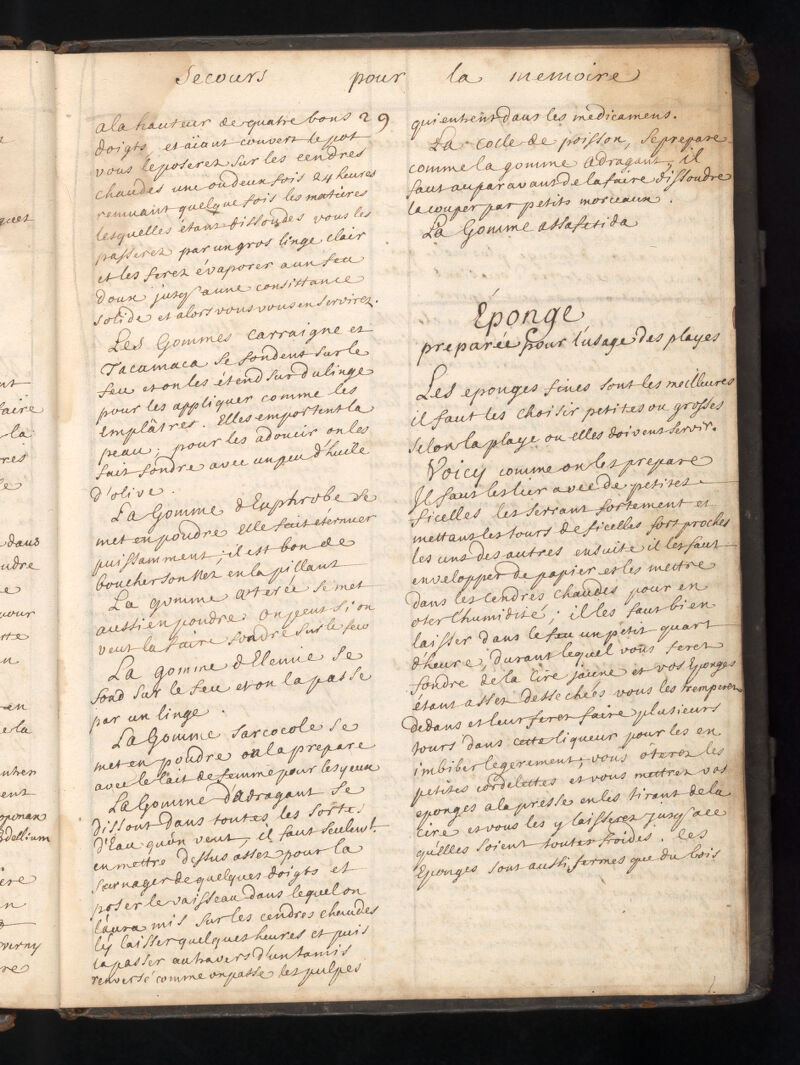 Secours pour la memoire
29
a la hauteur de quatre bons
doigts, et aïant couvert le pot
vous le poserez sur les cendres
chaudes une ou deux fois 24 heures
remuant quelque fois les matieres
lesquelles étant dissoudes vous les
passerez par un gros linge clair
et les ferez évaporer a un feu
doux jusq'a une consistance
solide et alors vous vous en servirez.
Les Gommes Carraigne et
Tacamaca se fondent sur le
feu et on les étend sur du linge
pour les appliquer comme les
emplâtres. Elles emportent la
peau; pour les adoucir on les
fait fondre avec un peu d'huile
d'olive.
La Gomme d'Euphrobe se
met en poudre elle fait éternuer
puissamment; il est bon de
boucher son Nez en la pillant
La gomme se met
aussi en poudre on peut si on
veut la faire fondre sur le feu
La gomme d'Elemie se
fond sur le feu et on la passe
par un linge.
La Gomme sarcocole se
met en poudre on la prepare
avec le lait de femme pour les yeux
La Gomme d'adragant se
dissout dans toutes les sortes
d'Eau qu'on veut, il faut seulemt.
en mettre dessus assez pour la
surnager de quelques doigts et
poser le vaisseau dans lequel on
l'aura mis sur les cendres chaudes
l'y laisser quelques heures et puis
la passer au travers d'un tamis
renversé comme on passe les pulpes
qui entrent dans les medicamens.
La colle de poisson, se prepare
comme la gomme adragant; il
faut auparavant de la faire dissoudre
la couper par petits morceaux.
La Gomme assafetida
Éponge
preparée pour l'usage des playes
Les eponges fines sont les meilleures
il faut les choisir petites ou grosses
selon la playe ou elles doivent servir.
Voicy comme on les prepare
Il faut les lier avec de petites
ficelles les serrant fortement et
mettant les tours de ficelles fort proches
les uns des autres ensuite il les faut
envelopper de papier et les mettre
dans les cendres chaudes pour en
oter l'humidité; il les faut bien
laisser dans le feu un petit quart
d'heure, durant lequel vous ferez
fondre de la cire jaune et vos éponges
étant assez dessechées vous les tremperez
dedans et leur ferez faire plusieurs
tours dans cette liqueur pour les en
imbiber legerement; vous ôterez les
petites cordelettes et vous mettrez vos
eponges a la presse en les tirant de la
cire et vous les y laisserez jusq'a ce
qu'elles soient toutes froides. les
Eponges sont aussi fermes que du bois